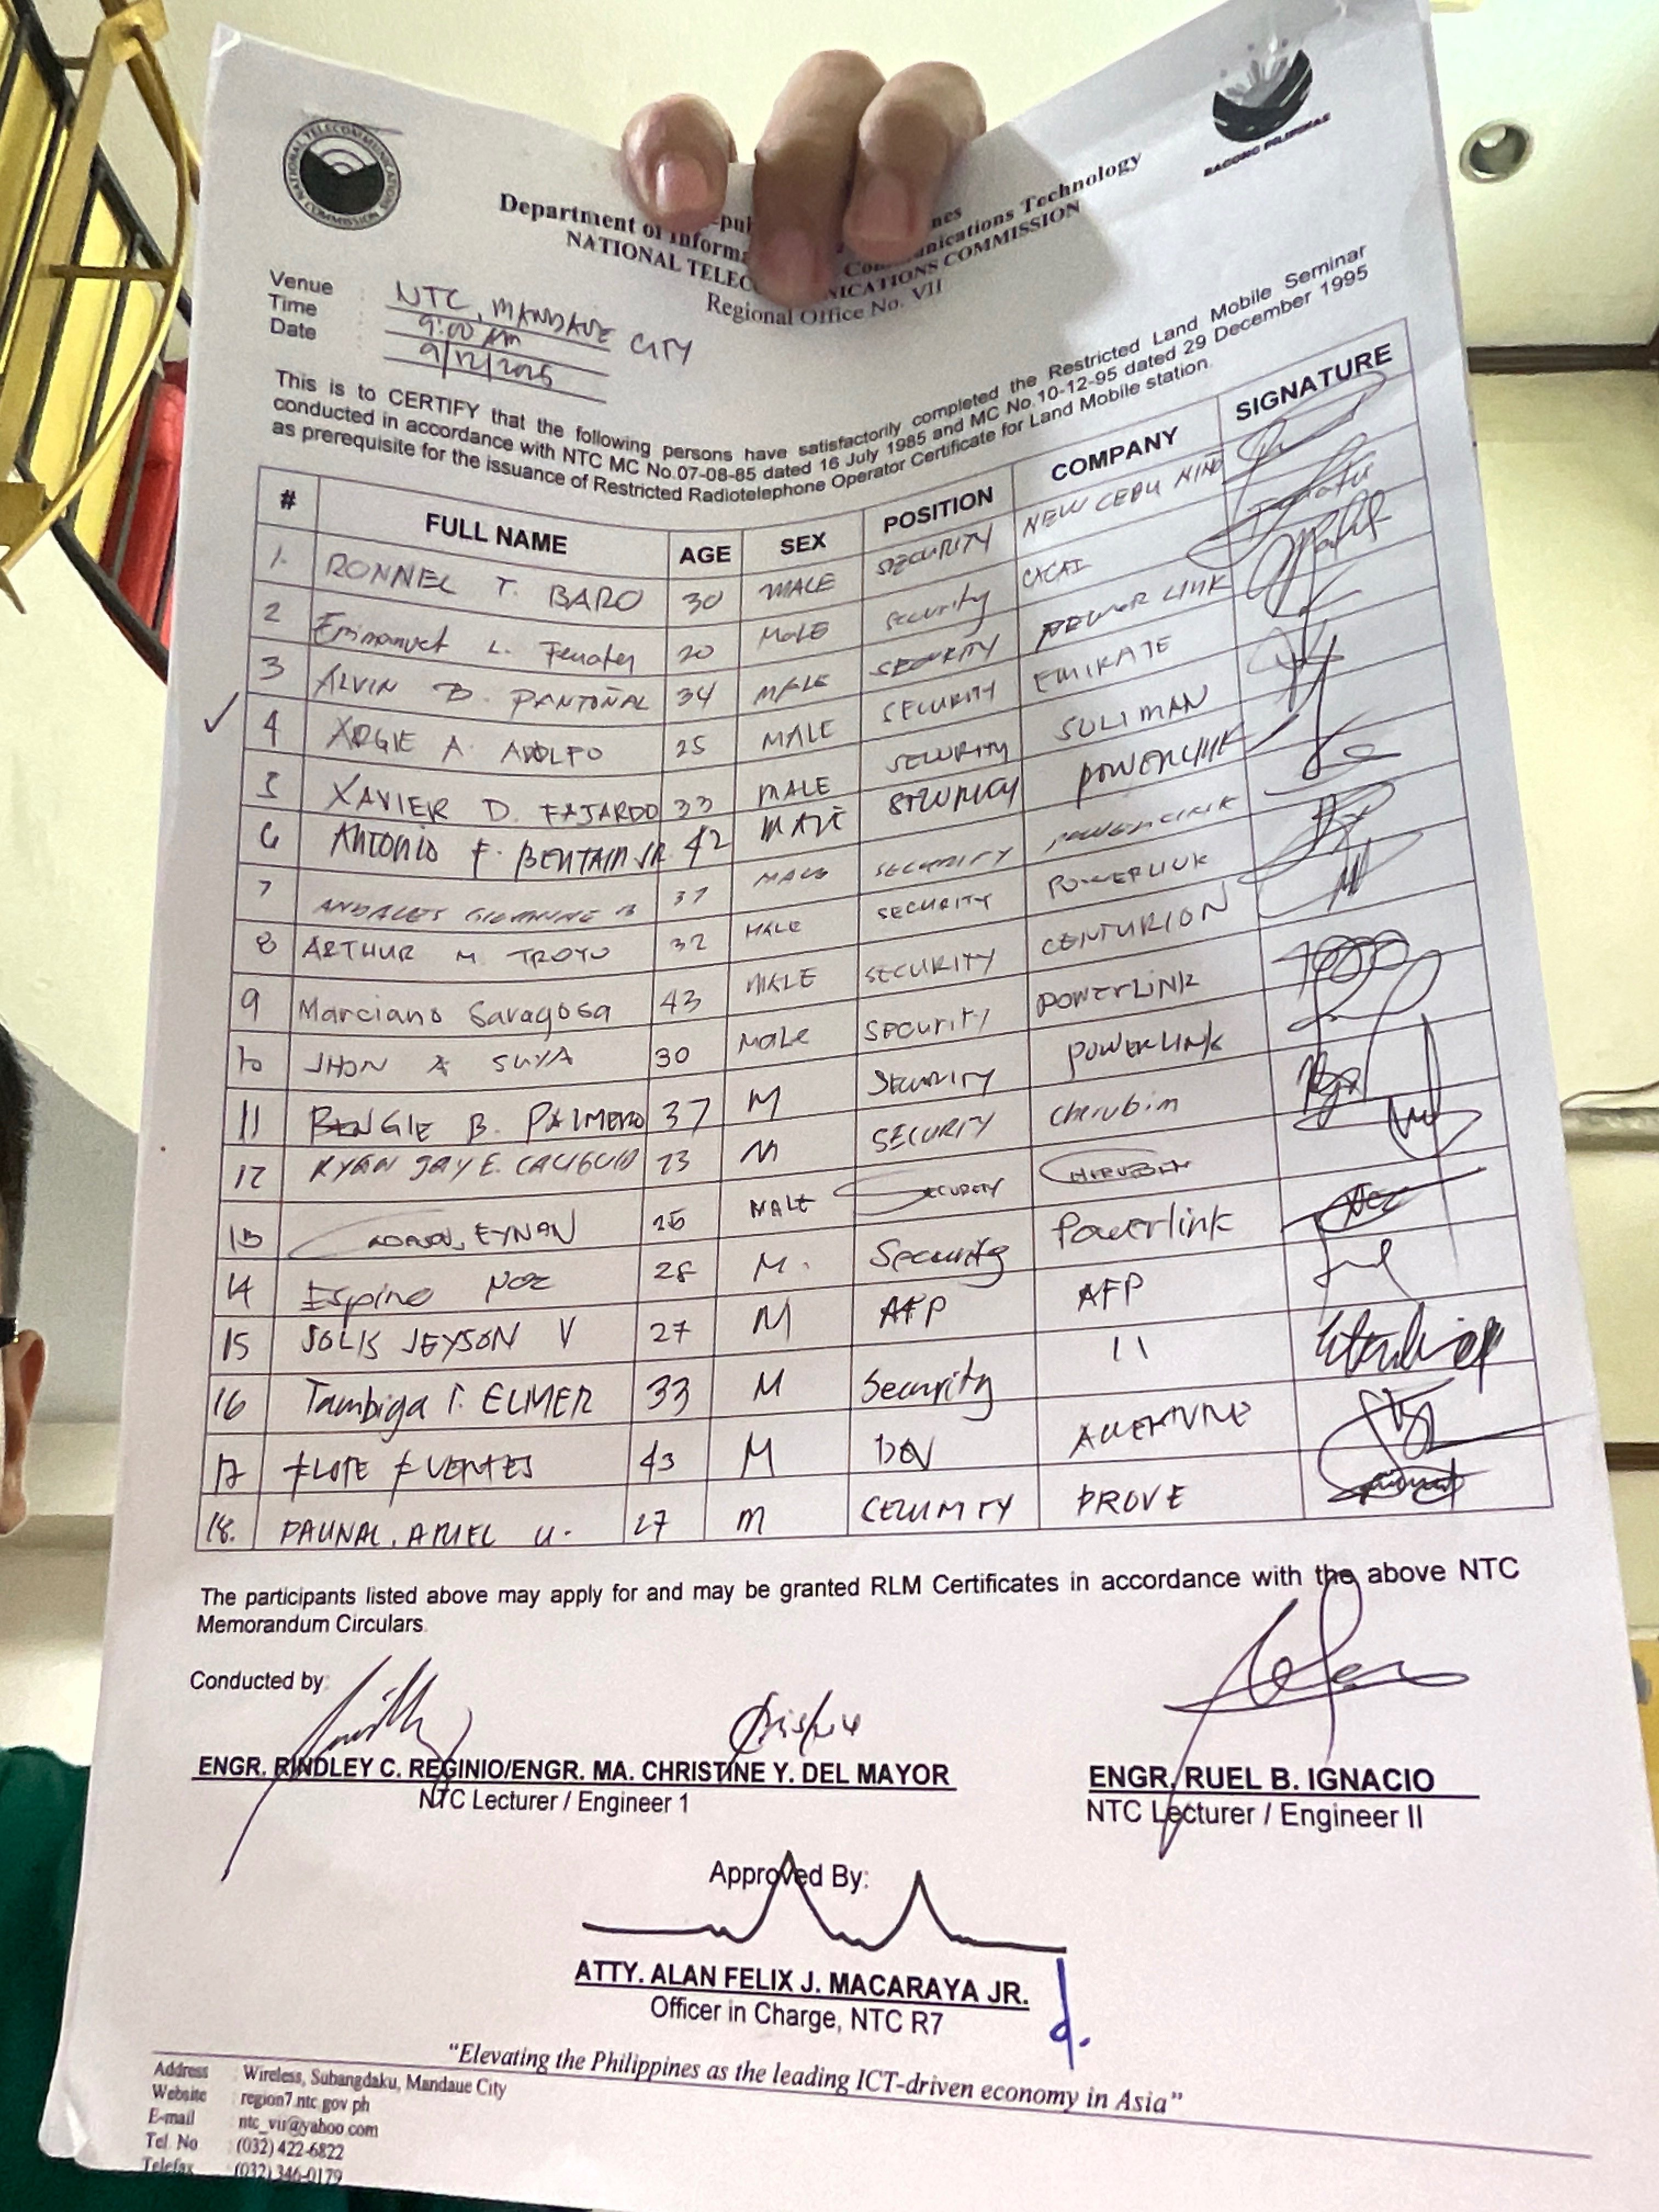 NATIONAL TELECOMMUNICATIONS COMMISSION
BAGONG PILIPINAS
Department of
Communications Technology
NATIONAL COMMISSION
Regional Office No. VII
Venue : NTC, MANDAUE CITY
Time : 9:00 AM
Date : 9/12/2025
This is to CERTIFY that the following persons have satisfactorily completed the Restricted Land Mobile Seminar
conducted in accordance with NTC MC No.07-08-85 dated 16 July 1985 and MC No.10-12-95 dated 29 December 1995
as prerequisite for the issuance of Restricted Radiotelephone Operator Certificate for Land Mobile station.
# FULL NAME AGE SEX POSITION COMPANY SIGNATURE
1. RONNEL T. BARO 30 MALE SECURITY NEW CEBU
2 Emmanuel L. 20 MALE security
3 ALVIN B. PANTOÑAL 34 MALE SECURITY LINK
4 ARGIE A. ADOLFO 25 MALE SECURITY EMIRATE
5 XAVIER D. FAJARDO 33 MALE SECURITY SULIMAN
6 ANTONIO F. BENTAIN JR. 42 MALE SECURITY POWERLINK
7 ANDALES GIOVANNE B 37 MALE SECURITY
8 ARTHUR M TROYO 32 MALE SECURITY POWERLINK
9 Marciano Saragosa 43 MALE SECURITY CENTURION
10 JHON A SUYA 30 MALE SECURITY POWERLINK
11 BENGIE B. PALMERO 37 M SECURITY POWERLINK
12 RYAN JAY E. 23 M SECURITY Cherubim
13 EYNAN 26 MALE SECURITY
14 Espino Noe 28 M. Security Powerlink
15 SOLIS JEYSON V 27 M AFP AFP
16 Tambiga T. ELMER 33 M Security 11
17 FLOTE FUENTES 43 M
18. PAUNAL, ARIEL U. 27 M CEZUMITY PROVE
The participants listed above may apply for and may be granted RLM Certificates in accordance with the above NTC
Memorandum Circulars.
Conducted by:
ENGR. RINDLEY C. REGINIO/ENGR. MA. CHRISTINE Y. DEL MAYOR
NTC Lecturer / Engineer 1
ENGR. RUEL B. IGNACIO
NTC Lecturer / Engineer II
Approved By:
ATTY. ALAN FELIX J. MACARAYA JR.
Officer in Charge, NTC R7
"Elevating the Philippines as the leading ICT-driven economy in Asia"
Address : Wireless, Subangdaku, Mandaue City
Website : region7.ntc.gov.ph
E-mail : ntc_vii@yahoo.com
Tel. No : (032) 422-6822
Telefax : (032) 346-0179